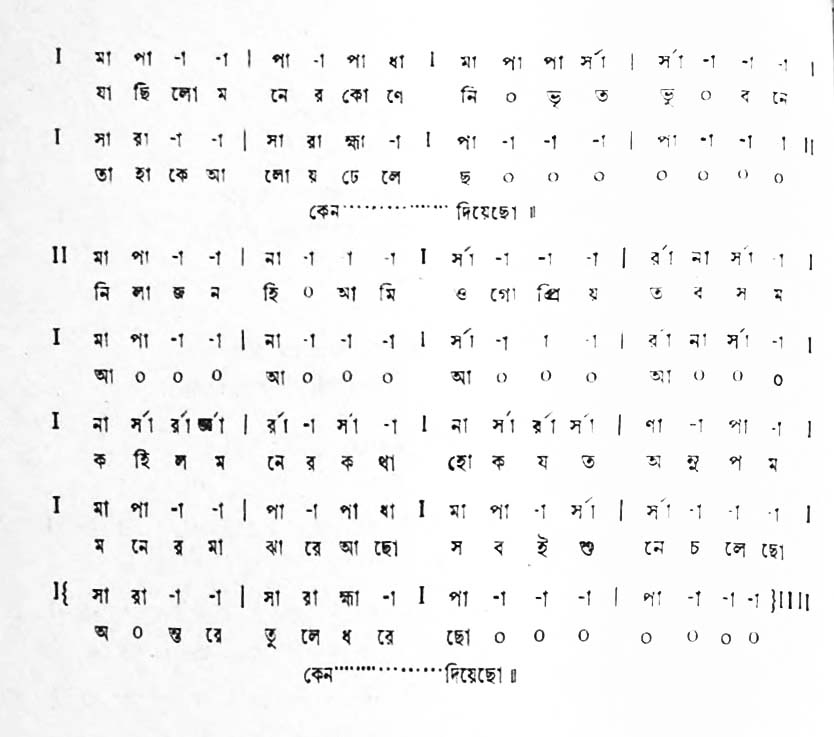 I মা পা -া -া | পা -া পা ধা I মা পা পা র্সা | র্সা -া -া -া |
যা ছি লো ম নে র কো ণে নি ০ ভৃ ত ভু ০ ব নে
I সা রা -া -া | সা রা হ্মা -া I পা -া -া -া | পা -া -া া ||
তা হা কে আ লো য় ঢে লে ছ ০ ০ ০ ০ ০ ০ ০
কেন················ দিয়েছো ॥
II মা পা -া -া | না -া া -া I র্সা -া -া -া | র্রা না র্সা -া |
নি লা জ ন হি ০ আ মি ও গো প্রি য় ত ব স ম
I মা পা -া -া | না -া -া -া I র্সা -া া -া | র্রা না র্সা -া |
আ ০ ০ ০ আ ০ ০ ০ আ ০ ০ ০ আ ০ ০ ০
I না র্সা র্রা র্জ্ঞা | র্রা -া র্সা -া I না র্সা র্রা র্সা | ণা -া পা -া |
ক হি ল ম নে র ক থা হো ক য ত অ নু প ম
I মা পা -া -া | পা -া পা ধা I মা পা -া র্সা | র্সা -া -া -া |
ম নে র মা ঝা রে আ ছো স ব ই শু নে চ লে ছো
I{ সা রা -া -া | সা রা হ্মা -া I পা -া -া -া | পা -া -া -া }IIII
অ ০ ন্ত রে তু লে ধ রে ছো ০ ০ ০ ০ ০ ০ ০
কেন··················দিয়েছো ॥